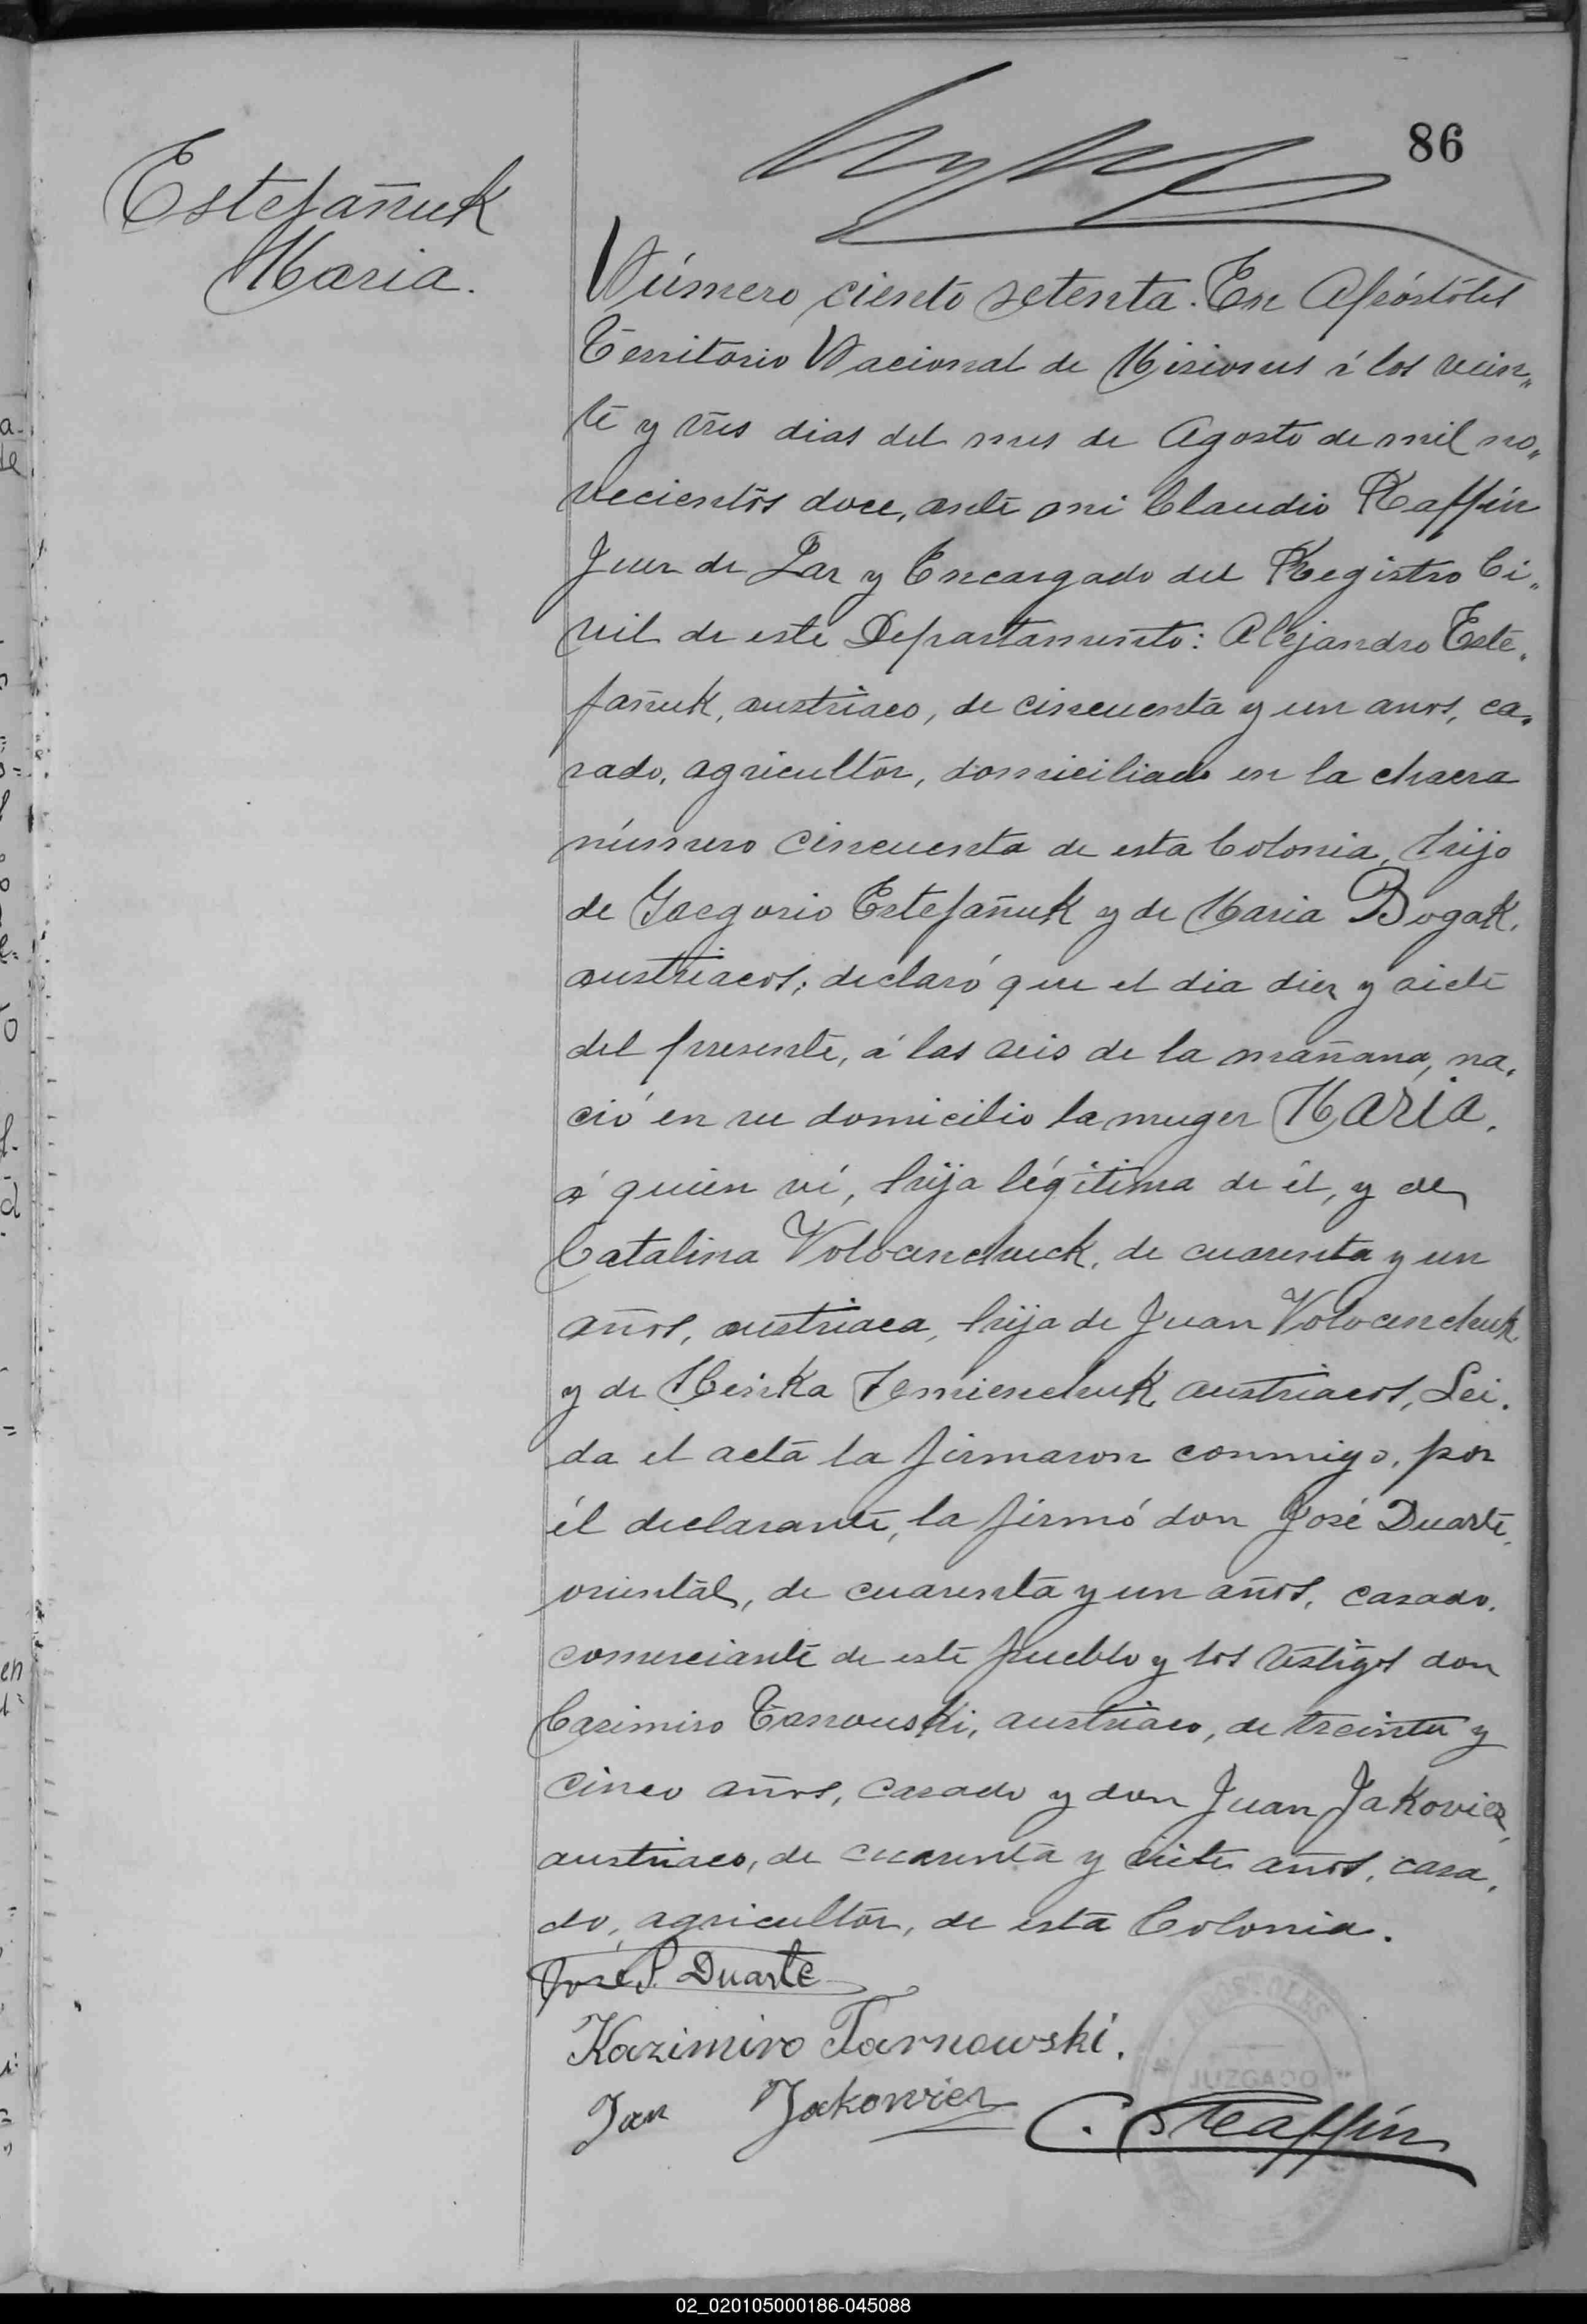 86
Estefañuk
Maria.
Número ciento setenta. En Apóstoles
Territorio Nacional de Misiones á los vein„
te y tres dias del mes de Agosto de mil no„
vecientos doce, ante mi Claudio Raffin
Juez de Paz y Encargado del Registro Ci„
vil de este Departamento: Alejandro Este„
fañuk, austriaco, de cincuenta y un anos, ca„
sado, agricultor, domiciliado en la chacra
número cincuenta de esta Colonia, hijo
de Gregorio Estefañuk y de Maria Bogak,
austriacos; declaró que el dia diez y siete
del presente, á las seis de la mañana, na„
ció en su domicilio la muger MARIA,
á quien ví, hija légitima de él, y de
Catalina Volocenchuck, de cuarenta y un
años, austriaca, hija de Juan Volocenchuk
y de Meńka Semienchuk austriacos, Lei„
da el acta la firmaron conmigo, por
él declarante, la firmó don José Duarte,
oriental, de cuarenta y un años, casado,
comerciante de este pueblo y los testigos don
Casimiro Tarnouski, austriaco, de treinta y
cinco años, casado y don Juan Jakovicz,
austriaco, de cuarenta y siete años, casa„
do, agricultor, de esta Colonia.
José P. Duarte
Kazimiro Tarnowski.
Jan Jakowicz
C. Raffin
APOSTOLES
JUZGADO
02_020105000186-045088